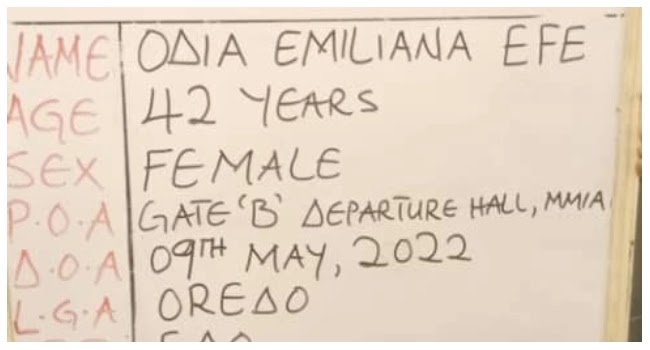 NAME ODIA EMILIANA EFE
AGE 42 YEARS
SEX FEMALE
P.O.A GATE 'B' DEPARTURE HALL, MMIA
D.O.A 09TH MAY, 2022
L.G.A OREDO